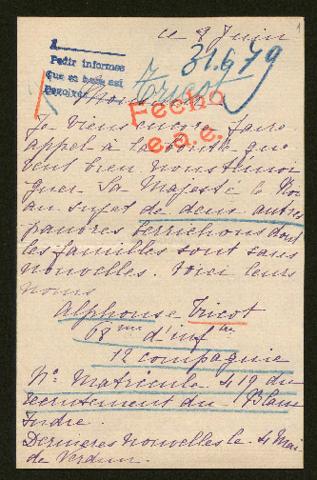 ce 8 Juin
1
Pedir informes
que se hace así
31.679
Monsieur
Fecho
e.a.e.
Je viens encore faire
appel à la bonté que
veut bien nous témoi
gner Sa Majesté le Roi
au sujet de deux autres
pauvres berrichons dont
les familles sont sans
nouvelles. Voici leurs
noms
Alphonse Tricot
68me d'infrie
12 compagnie
No Matricule 419 du
recrutement du Blanc
Indre.
Dernières nouvelles le 4 Mai
de Verdun